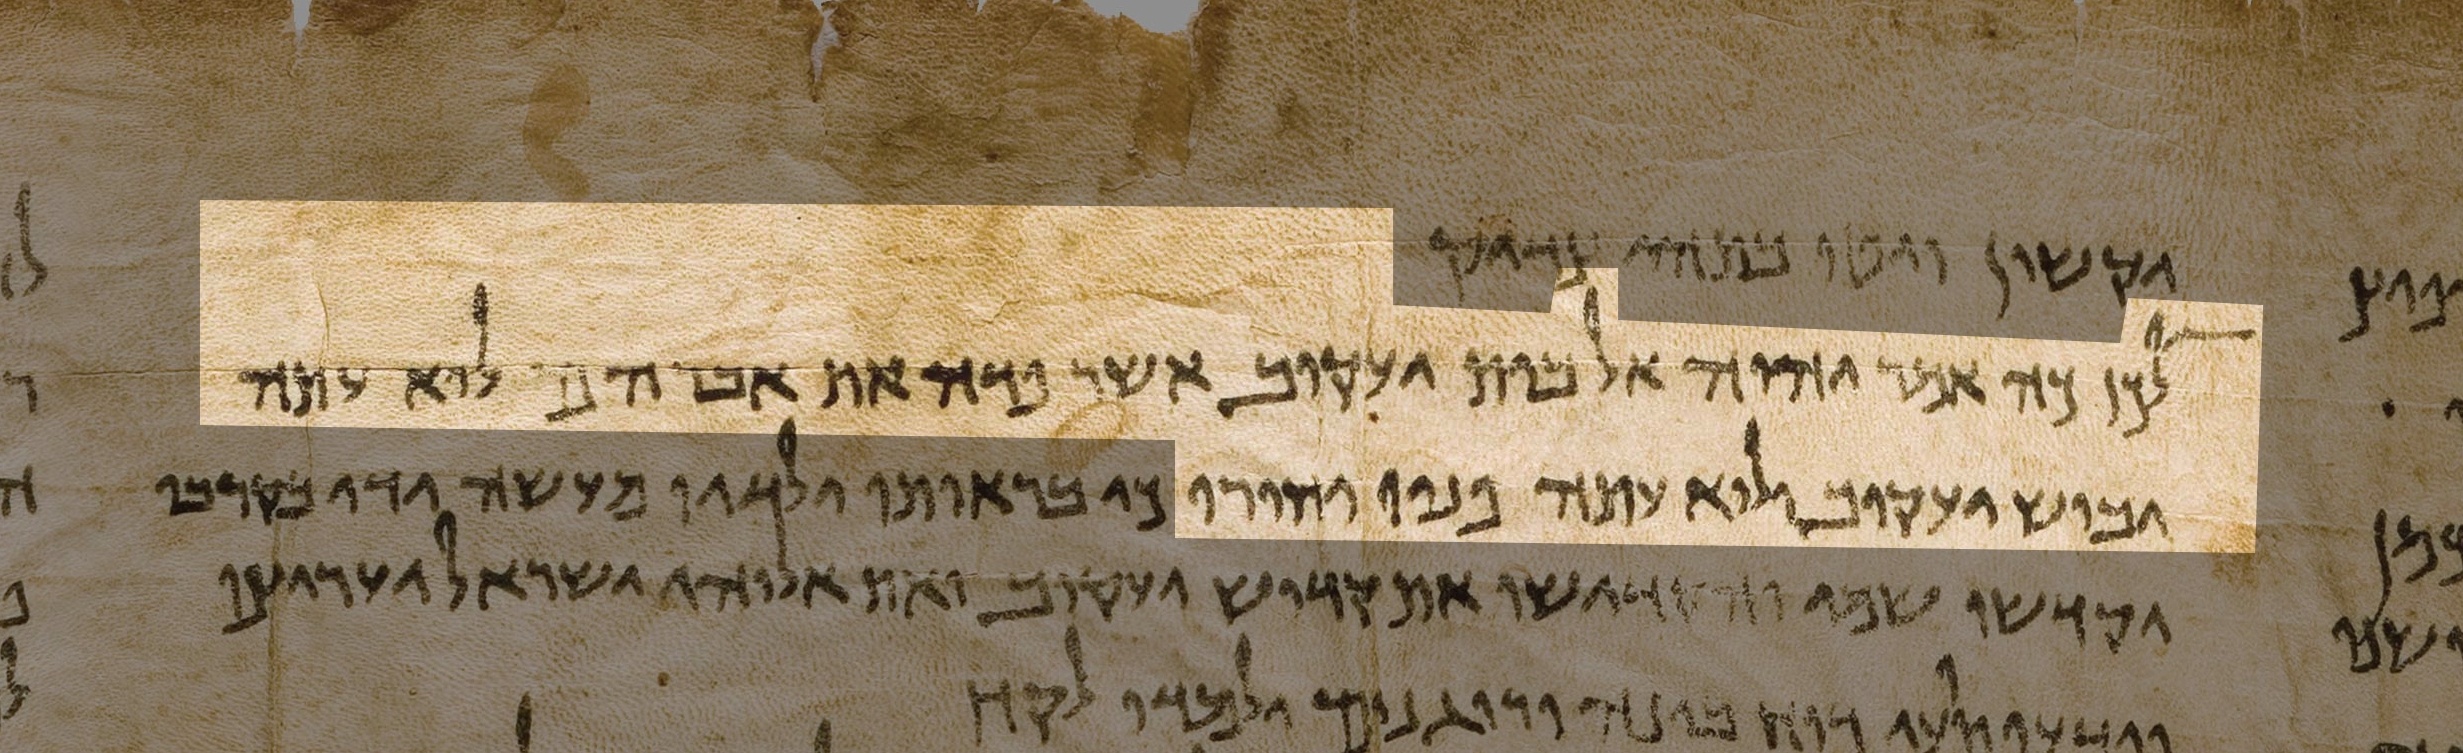 יקשון ויטו בתוהו צדיק
לכן כה אמר יהוה אל בית יעקוב אשר פדה את אברהם לוא עתה
יבוש יעקוב ולוא עתה פניו יחורו כי בראותו ילדיו מעשה ידי בקרבו
יקדישו שמי והקדישו את קדוש יעקוב ואת אלוהי ישראל יעריצו
וידעו תועי רוח בינה ורוגנים ילמדו לקח